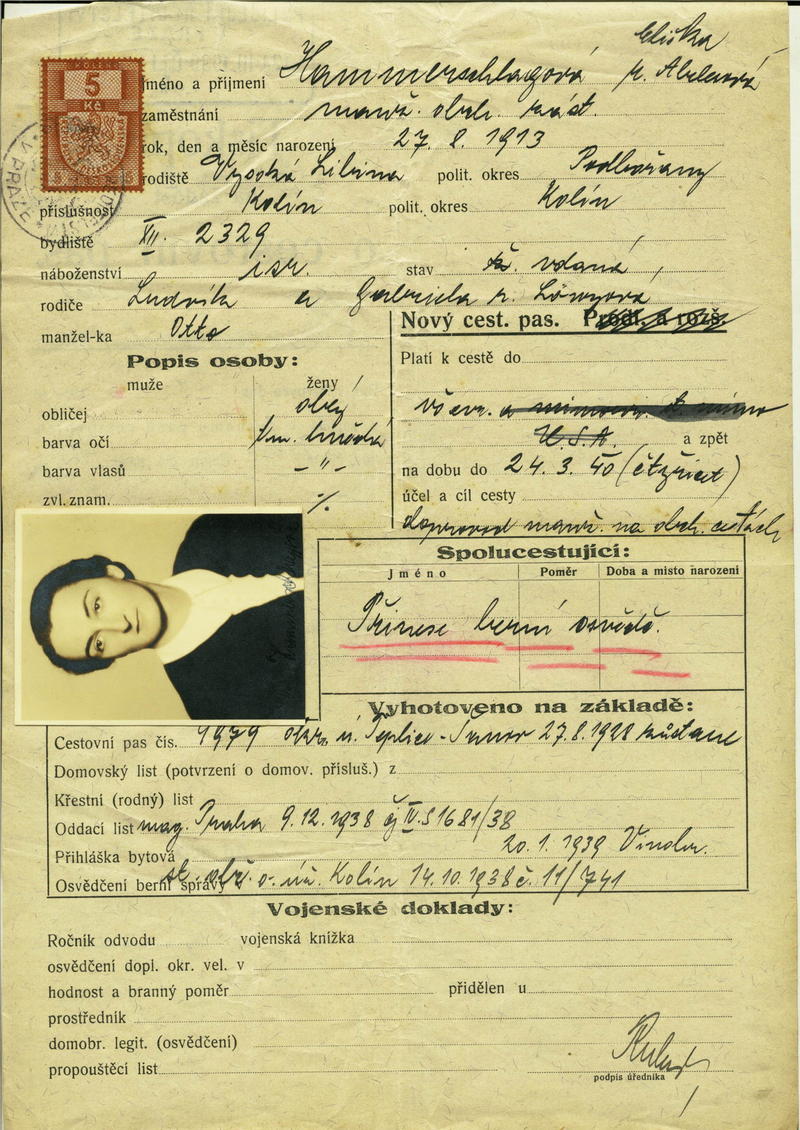 Eliška
jméno a příjmení Hammerschlagová r. Abelesová
5
Kč
zaměstnání manž. obch. zást.
rok, den a měsíc narození 27. 8. 1913
rodiště Vysoká Libina polit. okres Podbořany
V PRAZE
příslušnost Kolín polit. okres Kolín
bydliště XII. 2329
náboženství isr. stav vdaná
rodiče Ludvík a Gabriela r. Löwyová
manžel-ka Otto
Nový cest. pas. Prodl. a rozš.
Popis osoby:
Platí k cestě do
muže ženy
obličej obly
vševr.
barva očí tm. hnědá
U.S.A. a zpět
barva vlasů – " –
na dobu do 24. 3. 40 (čtyřicet)
zvl. znam. ·/.
účel a cíl cesty
doprovod manž. na obch. cestách
Spolucestující:
Jméno Poměr Doba a místo narození
Přinese berní osvědč.
Vyhotoveno na základě:
Cestovní pas čís. 1979 okr. ú. Teplice-Šanov 27.8.1928 zůstane
Domovský list (potvrzení o domov. přísluš.) z
Křestní (rodný) list
Oddací list mag. Praha 9.12.1938 čj IV. S 1681/38
20. 1. 1939
Přihláška bytová
Osvědčení berní správy z o. úř. Kolín 14.10.1938 č. 11/741
Vojenské doklady:
Ročník odvodu vojenská knížka
osvědčení dopl. okr. vel. v
hodnost a branný poměr přidělen u
prostředník
domobr. legit. (osvědčení)
propouštěcí list
podpis úředníka